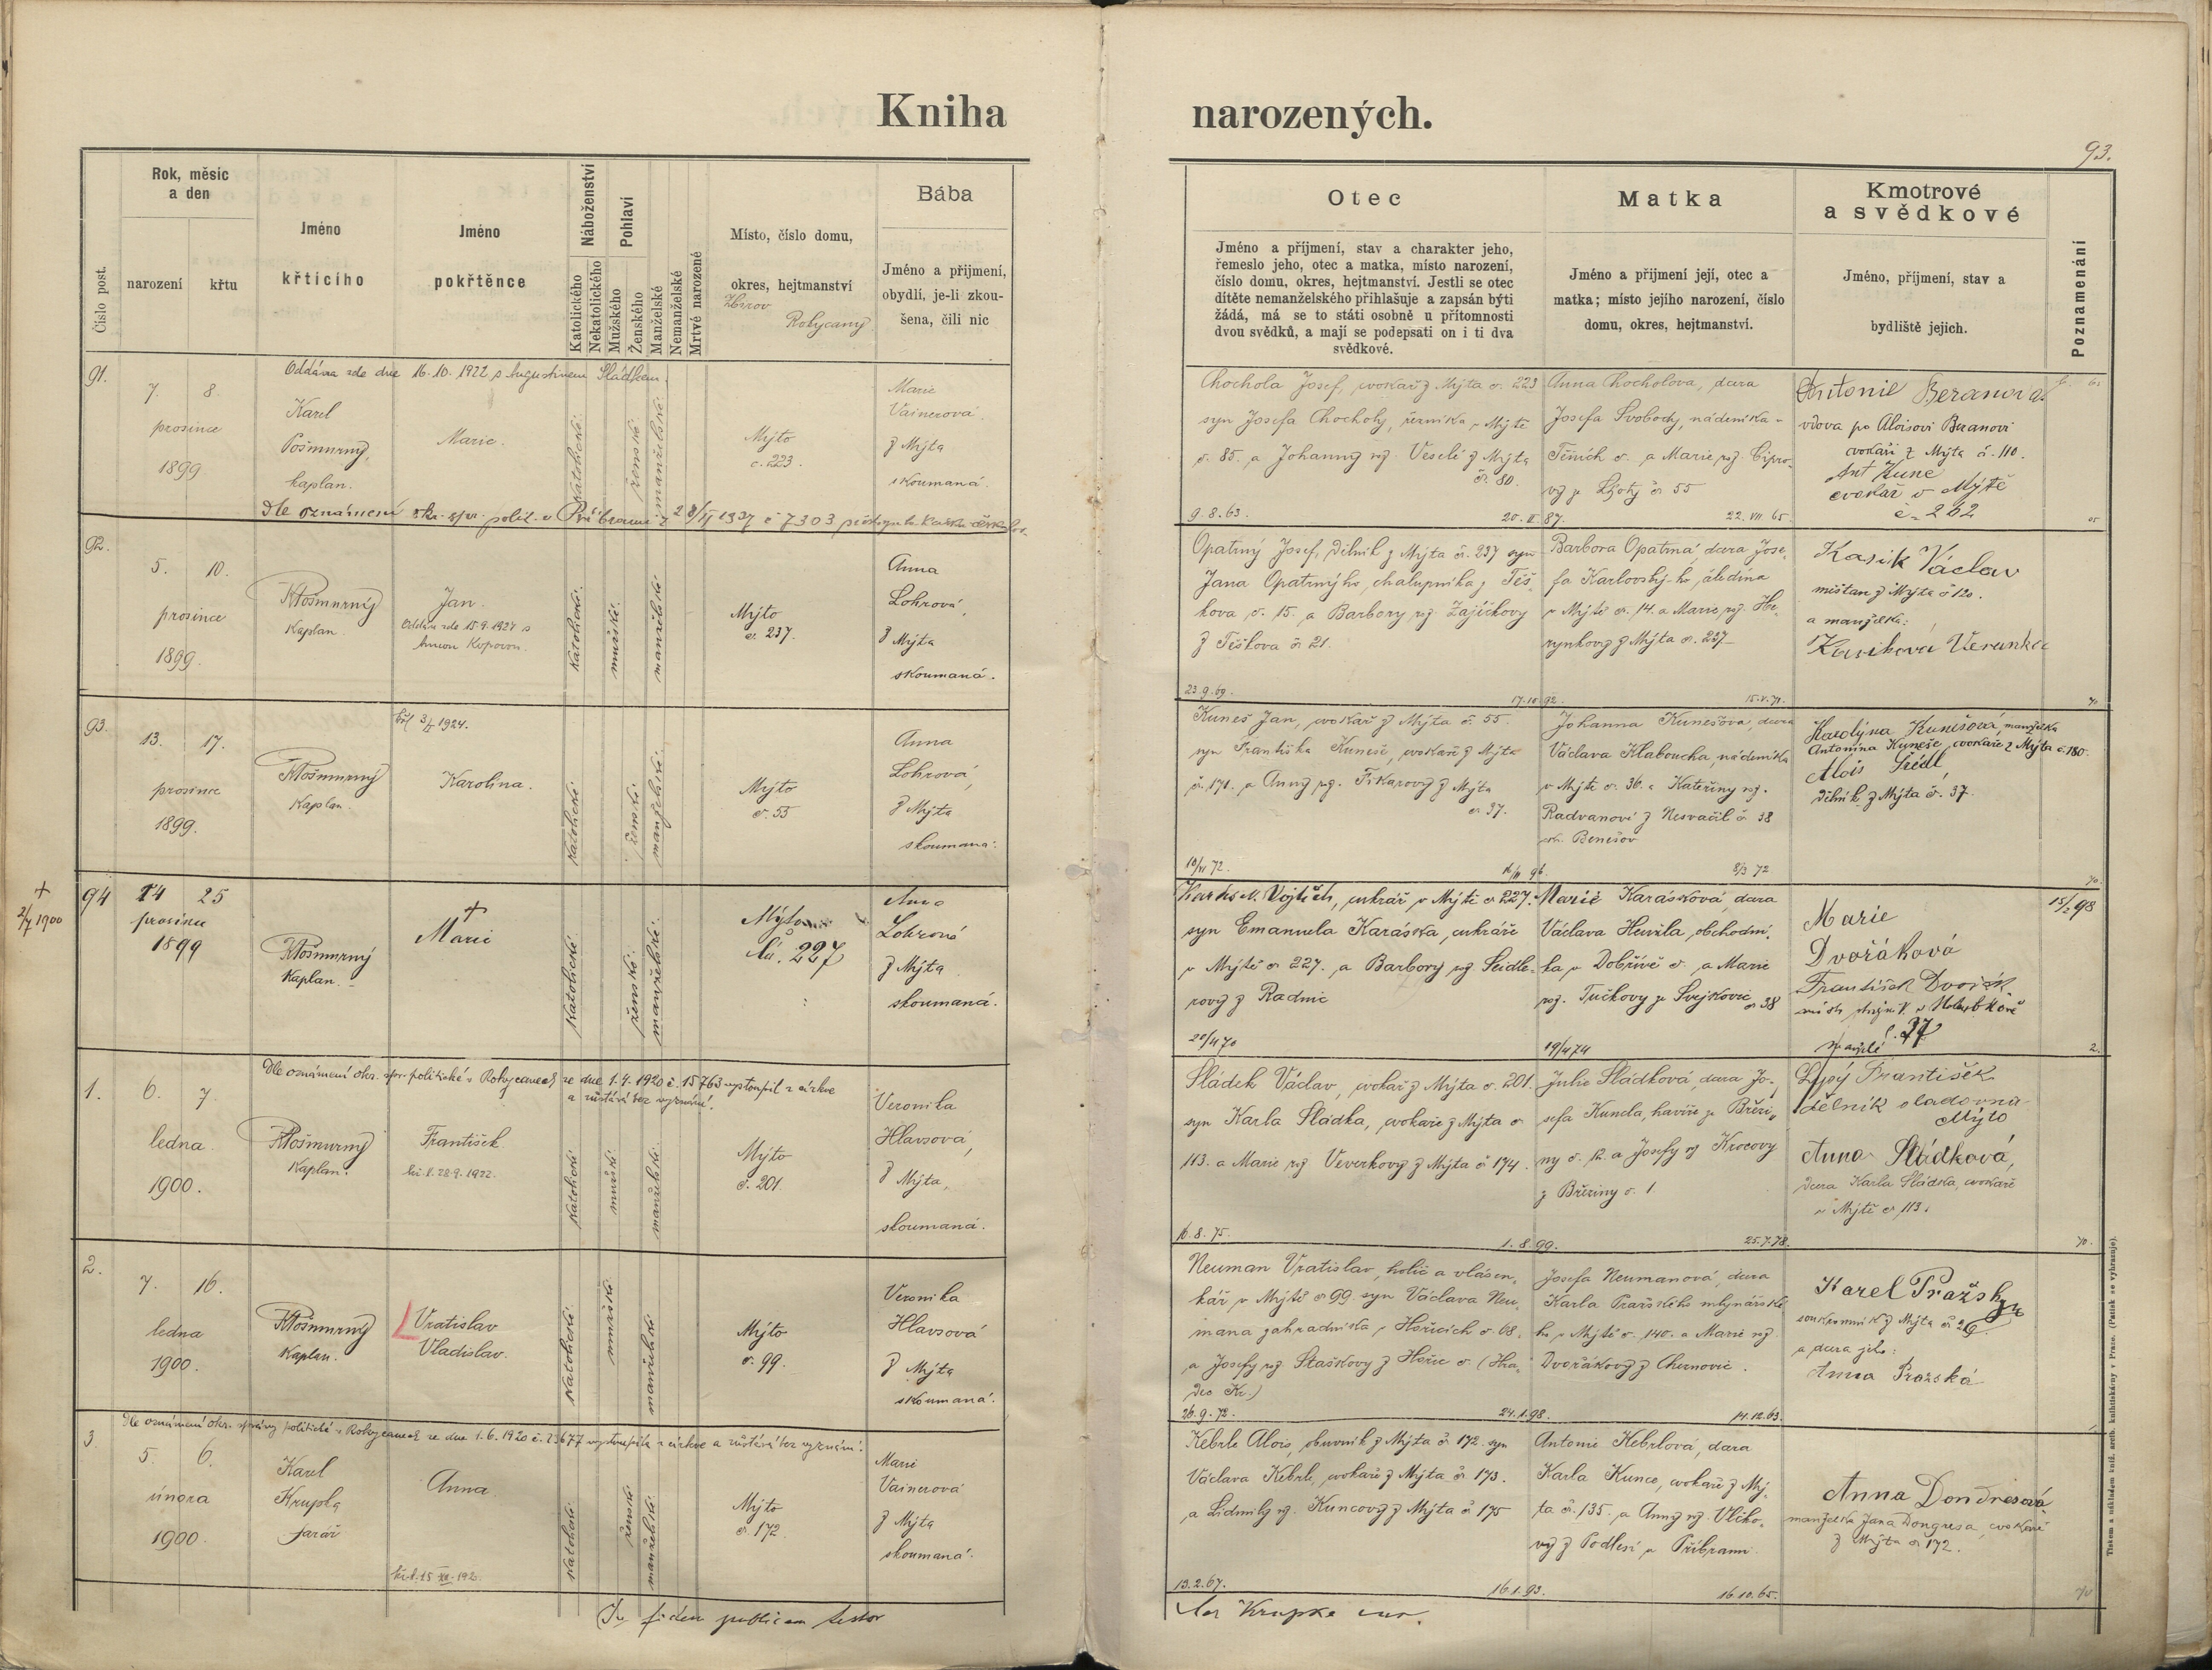 Kniha narozených.
93.
Číslo post.
Rok, měsíc
a den
narození
křtu
Jméno
křtícího
Jméno
pokřtěnce
Náboženství
Katolického
Nekatolického
Pohlaví
Mužského
Ženského
Manželské
Nemanželské
Mrtvé narozené
Místo, číslo domu,
okres, hejtmanství
Zbirov
Rokycany
Bába
Jméno a příjmení,
obydlí, je-li zkou-
šena, čili nic
Otec
Jméno a příjmení, stav a charakter jeho,
řemeslo jeho, otec a matka, místo narození,
číslo domu, okres, hejtmanství. Jestli se otec
dítěte nemanželského přihlašuje a zapsán býti
žádá, má se to státi osobně u přítomnosti
dvou svědků, a mají se podepsati on i ti dva
svědkové.
Matka
Jméno a příjmení její, otec a
matka; místo jejího narození, číslo
domu, okres, hejtmanství.
Kmotrové
a svědkové
Jméno, příjmení, stav a
bydliště jejich.
Poznamenání
91.
Oddána zde dne 16.10.1922 s Augustinem Sládkem.
7. 8.
prosince
1899.
Karel
Pošmurný,
kaplan.
Marie.
katolické.
ženské.
manželské.
Mýto
č. 223.
Marie
Vainerová
z Mýta
skoumaná.
Dle oznámení okr. spr. polit. v Příbrami
1937 č 7303
Chochola Josef, cvokař z Mýta č. 223
syn Josefa Chocholy, řezníka v Mýtě
č. 85. a Johanny roz. Veselé z Mýta
č. 80.
9.8.63.
Anna Chocholová, dcera
Josefa Svobody, nádeníka v
Těních č. a Marie roz. Cipro-
vy ze Lhoty č. 55
22.VII.65.
Antonie Beranová
vdova po Aloisovi Beranovi
cvokaři z Mýta č. 110.
Ant Kune
cvokař v Mýtě
č. 262
92.
5. 10.
prosince
1899.
KPošmurný
Kaplan.
Jan.
Oddán zde 15.9.1927 s
katolické.
mužské.
manželské
Mýto
č. 237.
Anna
Lohrová,
z Mýta
skoumaná.
Opatrný Josef, dělník z Mýta č. 237 syn
Jana Opatrnýho, chalupníka z Těš-
kova č. 15. a Barbory roz. Zajíčkovy
z Těškova č. 21.
23.9.69.
17.10.92.
Barbora Opatrná, dcera Jose-
fa Karlovskýho, čeledína
v Mýtě č. 14. a Marie roz. He-
rynkovy z Mýta č. 237
15.V.71.
Kasik Václav
měšťan z Mýta č 120.
a manželka:
Kasikova Verunka
70
93.
13. 17.
prosince
1899.
KPošmurný
Kaplan.
1924.
Karolina.
katolické
ženské.
manželské.
Mýto
č. 55
Anna
Lohrová,
z Mýta
skoumaná.
Kuneš Jan, cvokař z Mýta č. 55.
syn Františka Kuneše, cvokaře z Mýta
č. 171. a Anny roz. Fikarovy z Mýta
č. 37.
Johanna Kunešová, dcera
Václava Klaboucha, nádeníka
v Mýtě č. 36. a Kateřiny roz.
Radvanové z Nesvačil č. 38
ok. Benešov
8/3 72
Karolýna Kunešová, manželka
Antonína Kuneše, cvokaře z Mýta č. 180.
Alois Šédl,
dělník z Mýta č. 37.
70.
+
2/7 1900
94
14 25
prosince
1899
KPošmurný
Kaplan.
+
Marie
katolické.
ženské.
manželské.
Mýto
čís. 227
Anna
Lohrová
z Mýta
skoumaná.
Karásek Vojtěch, cukrář v Mýtě č. 227.
syn Emanuela Karáska, cukráře
v Mýtě č. 227. a Barbory roz. Seidle-
rovy z Radnic
20/4 70
Marie Karásková, dcera
Václava Heužla, obchodní-
ka v Dobřívě č. a Marie
roz. Tučkovy ze Svejkovic č. 38
19/4 74
Marie
Dvořáková
František Dvořák
v Holoubkově
č. 37
manželé
15/2 98
2.
1.
Dle oznámení okr. spr. politické v Rokycanech ze dne 1.4.1920 č. 15763 vystoupil z církve
a zůstává bez vyznání.
6. 7
ledna.
1900.
KPošmurný
Kaplan.
František
28.9.1922.
katolické
mužské
manželské.
Mýto
č. 201.
Veronika
Hlavsová,
z Mýta,
skoumaná.
Sládek Václav, cvokař z Mýta č. 201.
syn Karla Sládka, cvokaře z Mýta č
113. a Marie roz Veverkovy z Mýta č 174.
16.8.75.
1.8.99.
Julie Sládková, dcera Jo-
sefa Kuncla, havíře ze Březi-
ny č. 12. a Josefy roz Krocovy
z Březiny č. 1.
25.7.78.
Lypý František
dělník sladovna
Mýto
Anna Sládková,
dcera Karla Sládka, cvokaře
v Mýtě č. 113.
70.
2.
7. 16.
ledna
1900.
KPošmurný
Kaplan.
Vratislav
Vladislav.
katolické.
mužské.
manželské
Mýto
č. 99.
Veronika
Hlavsová
z Mýta
skoumaná.
Neuman Vratislav, holič a vlásen-
kář v Mýtě č 99. syn Václava Neu-
mana zahradníka v Hořicích č. 68.
a Josefy roz Staškovy z Hořic č. (Hra-
dec Kr.)
26.9.72.
24.1.98.
Josefa Neumanová, dcera
Karla Pražského mlynářské-
ho v Mýtě č. 140. a Marie roz
Dvořákovy z Chernovic.
14.12.63.
Karel Pražský
soukenník z Mýta č 26
a dcera jeho:
Anna Pražská
3
Dle oznámení okr. správy politické v Rokycanech ze dne 1.6.1920 č. 23677 vystoupila z církve a zůstává bez vyznání.
5. 6.
února
1900.
Karel
Krupka
farář
Anna.
katolické
ženské
manželské
Mýto
č. 172.
Marie
Vainerová
z Mýta
skoumaná.
Kebrle Alois, obuvník z Mýta č. 172. syn
Václava Kebrle, cvokaře z Mýta č. 173.
a Lidmily roz. Kuncovy z Mýta č 175
13.2.67.
16.1.93.
Antonie Kebrlová, dcera
Karla Kunce, cvokaře z Mý-
ta č. 135. a Anny roz. Vlčko-
vy z Podlesí u Příbrami.
16.10.65.
Anna Dondresová
manželka Jana Dongresa, cvokaře
z Mýta č 172.
In fidem publicam testor
Car Krupka
Tiskem a nákladem kníž. arcib. knihtiskárny v Praze. (Patisk se vyhrazuje).